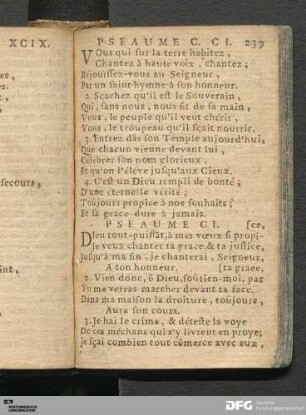 XCIX.
es,
secours,
int,
PSEAUME C. CI. 239
VOus qui sur la terre habitez,
Chantez à haute voix, chantez;
Réjouissez-vous au Seigneur,
Par un saint hymne à son honneur.
2. Scachez qu'il est le Souverain,
Qui, sans nous, nous fit de sa main,
Vous, le peuple qu'il veut chérir,
Vous, le troupeau qu'il sçait nourrir.
3. Entrez dãs son Temple aujourd'hui;
Que chacun vienne devant lui,
Célébrer son nom glorieux,
Et qu'on l'éleve jusqu'aux Cieux.
4. C'est un Dieu rempli de bonté;
D'une éternelle vérité;
Toujours propice à nos souhaits;
Et sa grace dure à jamais.
PSEAUME CI. [ce,
DIeu tout-puissãt, à mes vœux si propi-
Je veux chanter ta grace & ta justice,
Jusqu'à ma fin je chanterai, Seigneur,
A ton honneur. [ta grace,
2. Vien donc, ô Dieu, soûtien-moi, par
Tu me verras marcher devant ta face.
Dans ma maison la droiture, toujours,
Aura son cours.
3. Je hai le crime, & déteste la voye
De ces méchans qui s'y livrent en proye;
Je sçai combien tout cõmerce avec eux,
DFG